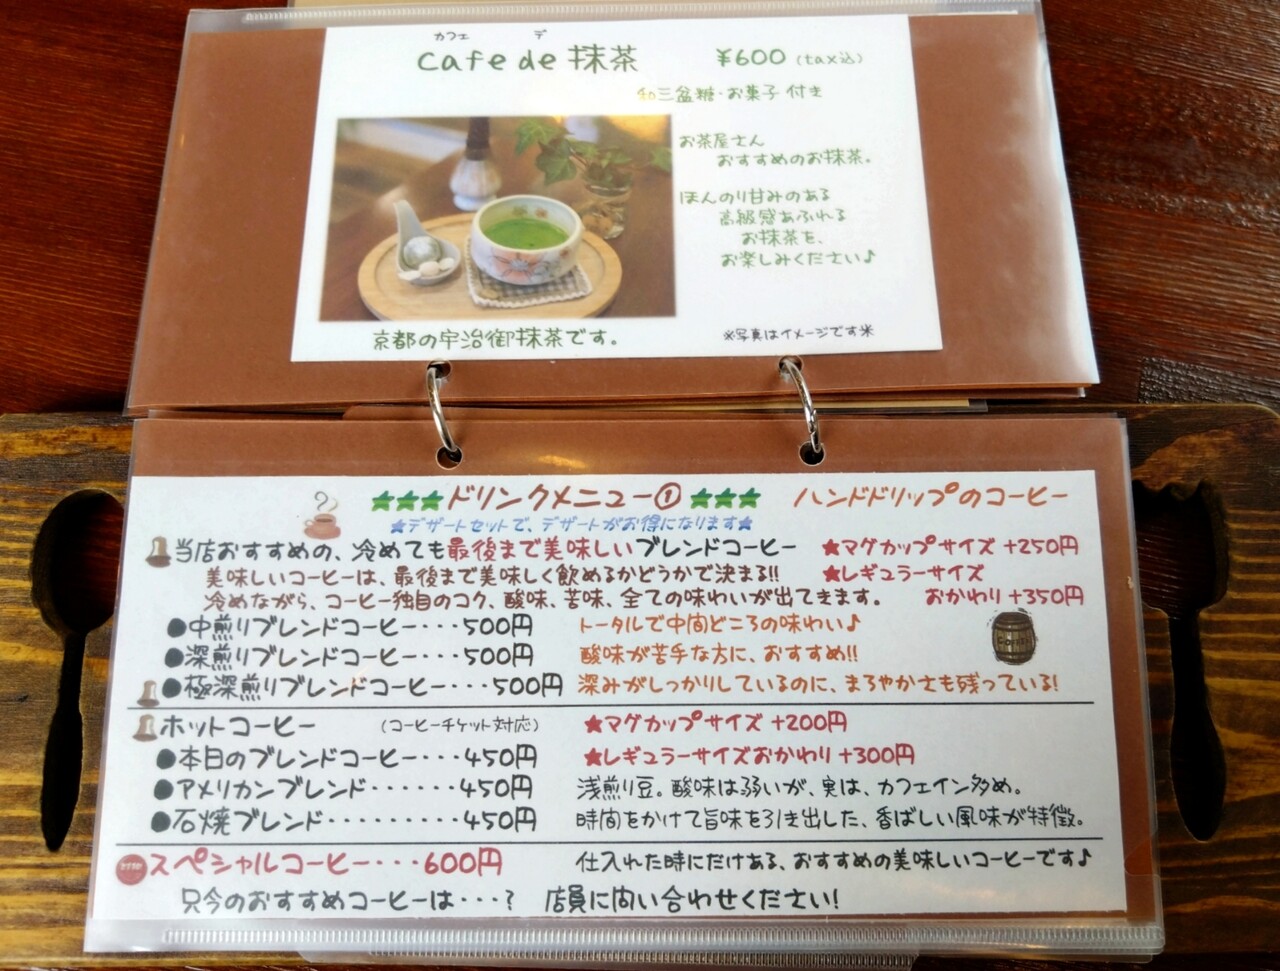 カフェ デ
Cafe de 抹茶 ¥600 (tax込)
和三盆糖・お菓子付き
お茶屋さん
おすすめのお抹茶。
ほんのり甘みのある
高級感あふれる
お抹茶を、
お楽しみください♪
京都の宇治御抹茶です。
※写真はイメージです※
★★★ドリンクメニュー①★★★ ハンドドリップのコーヒー
★デザートセットで、デザートがお得になります★
当店おすすめの、冷めても最後まで美味しいブレンドコーヒー ★マグカップサイズ +250円
美味しいコーヒーは、最後まで美味しく飲めるかどうかで決まる!! ★レギュラーサイズ
冷めながら、コーヒー独自のコク、酸味、苦味、全ての味わいが出てきます。 おかわり +350円
●中煎りブレンドコーヒー・・・500円 トータルで中間どころの味わい♪
●深煎りブレンドコーヒー・・・500円 酸味が苦手な方に、おすすめ!!
●極深煎りブレンドコーヒー・・・500円 深みがしっかりしているのに、まろやかさも残っている!
ホットコーヒー (コーヒーチケット対応) ★マグカップサイズ +200円
●本日のブレンドコーヒー・・・450円 ★レギュラーサイズおかわり +300円
●アメリカンブレンド・・・・・・450円 浅煎り豆。酸味は弱いが、実は、カフェイン多め。
●石焼ブレンド・・・・・・・・・450円 時間をかけて旨味を引き出した、香ばしい風味が特徴。
スペシャルコーヒー・・・600円 仕入れた時にだけある、おすすめの美味しいコーヒーです♪
只今のおすすめコーヒーは・・・? 店員に問い合わせください!